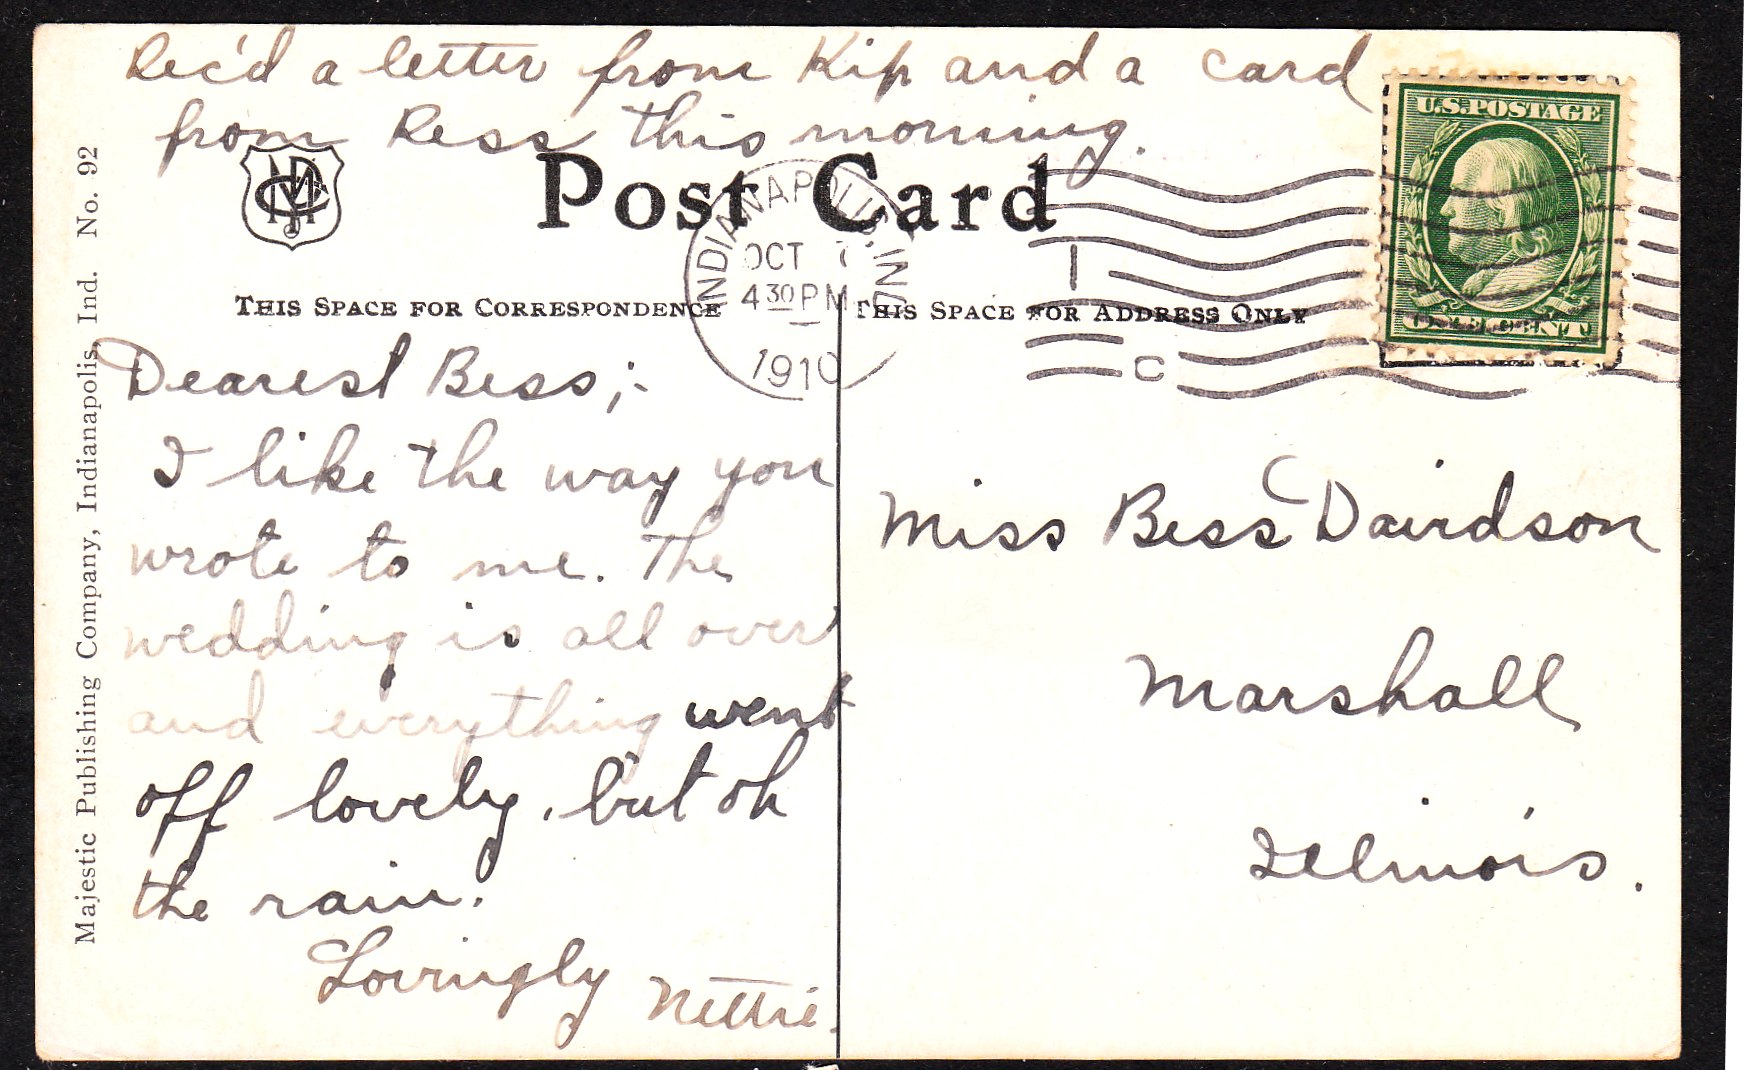 Rec'd a letter from Kip and a card
from Ress this morning.
Post Card
THIS SPACE FOR CORRESPONDENCE
THIS SPACE FOR ADDRESS ONLY
U.S. POSTAGE
ONE CENT
INDIANAPOLIS, IND.
OCT 7
4 30 PM
1910
1
C
Dearest Bess;-
I like the way you
wrote to me. The
wedding is all over
and everything went
off lovely, but oh
the rain.
Lovingly Nettie.
Miss Bess Davidson
Marshall
Illinois.
Majestic Publishing Company, Indianapolis, Ind. No. 92